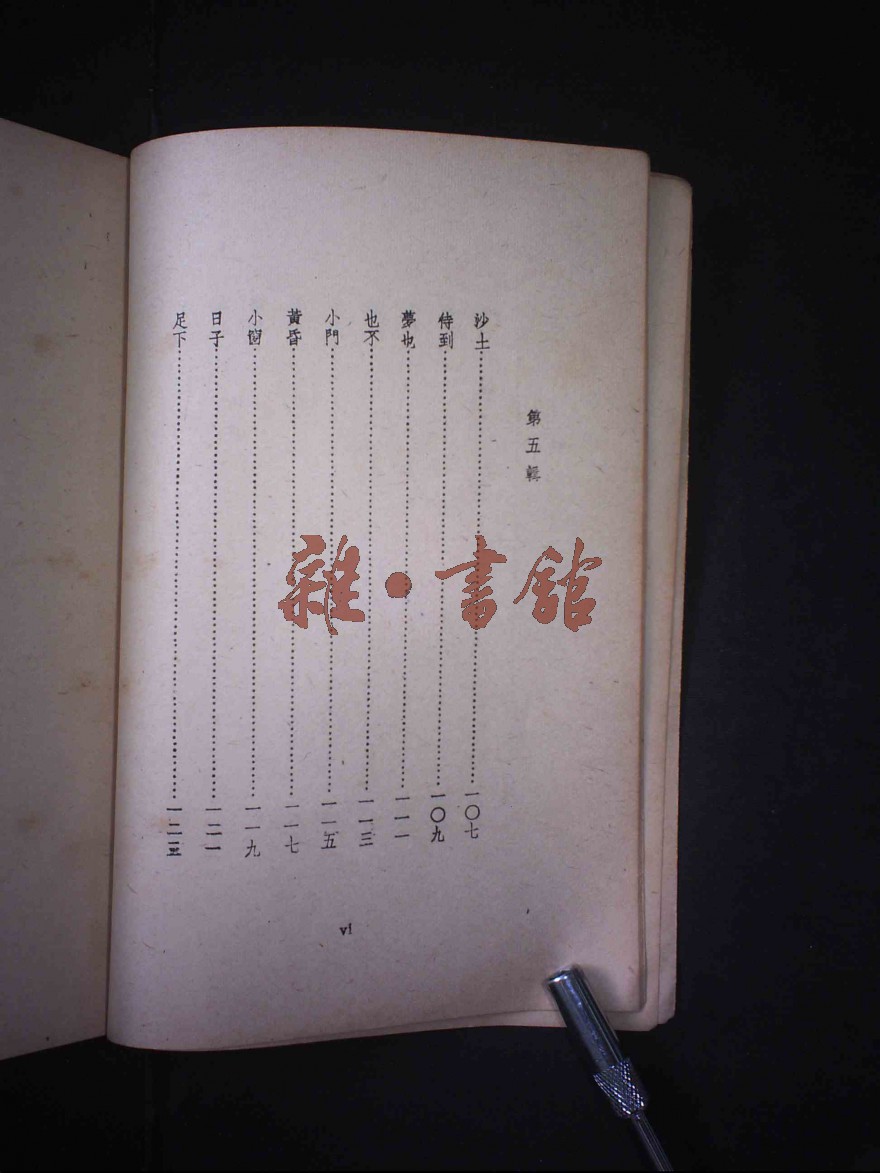 第五輯
沙土⋯⋯⋯⋯⋯⋯⋯⋯⋯⋯一〇七
待到⋯⋯⋯⋯⋯⋯⋯⋯⋯⋯一〇九
夢也⋯⋯⋯⋯⋯⋯⋯⋯⋯⋯一一一
也不⋯⋯⋯⋯⋯⋯⋯⋯⋯⋯一一三
小門⋯⋯⋯⋯⋯⋯⋯⋯⋯⋯一一五
黃昏⋯⋯⋯⋯⋯⋯⋯⋯⋯⋯一一七
小窗⋯⋯⋯⋯⋯⋯⋯⋯⋯⋯一一九
日子⋯⋯⋯⋯⋯⋯⋯⋯⋯⋯一二一
足下⋯⋯⋯⋯⋯⋯⋯⋯⋯⋯一二三
vi
雜·書館